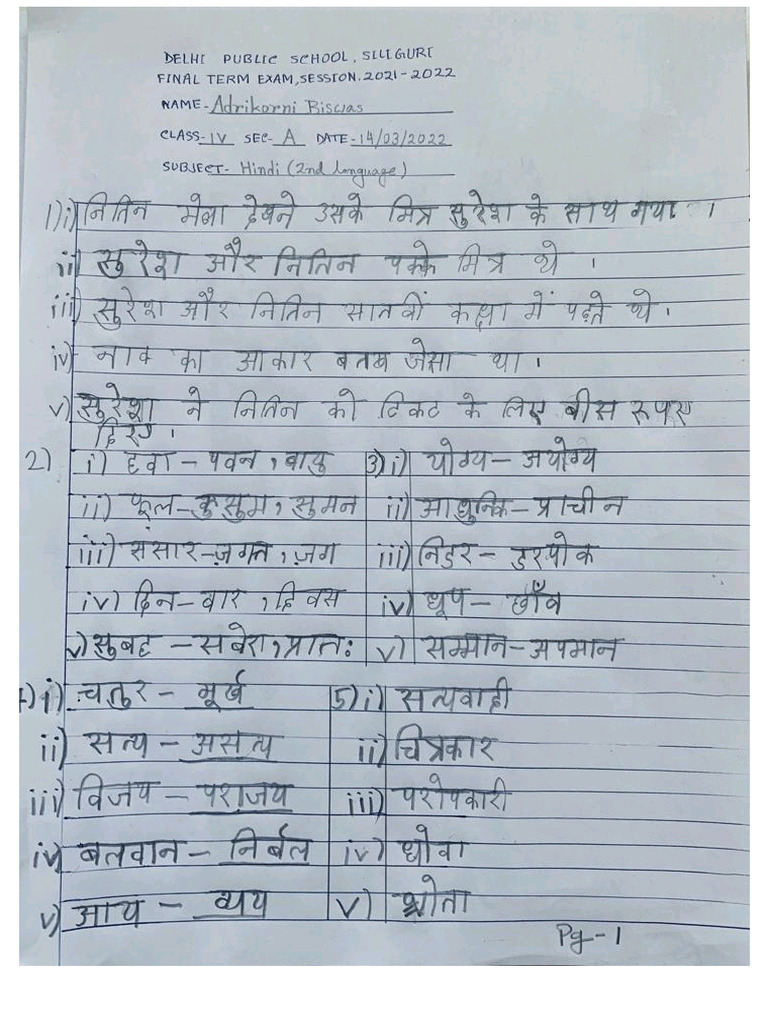 DELHI PUBLIC SCHOOL, SILIGURI
FINAL TERM EXAM, SESSION. 2021-2022
NAME- Adrikorni Biswas
CLASS- IV SEC- A DATE- 14/03/2022
SUBJECT- Hindi (2nd language)
1) i) नितिन मेला देखने उसके मित्र सुरेश के साथ गया ।
ii) सुरेश और नितिन पक्के मित्र थे ।
iii) सुरेश और नितिन सातवीं कक्षा में पढ़ते थे ।
iv) नाव का आकार बतख जेसा था ।
v) सुरेश ने नितिन को टिकट के लिए बीस रूपए
दिए ।
2) i) हवा – पवन, वायु 3) i) योग्य – अयोग्य
ii) फूल – कुसुम, सुमन ii) आधुनिक – प्राचीन
iii) संसार – ज़गत, ज़ग iii) निडर – डरपोक
iv) दिन – वार, दिवस iv) धूप – छाँव
v) सुबह – सवेरा, प्रातः v) सम्मान – अपमान
4) i) चतुर – मूर्ख 5) i) सत्यवादी
ii) सत्य – असत्य ii) चित्रकार
iii) विजय – पराजय iii) परोपकारी
iv) बलवान – निर्बल iv) धोवा
v) आय – व्यय v) श्रोता
Pg-1